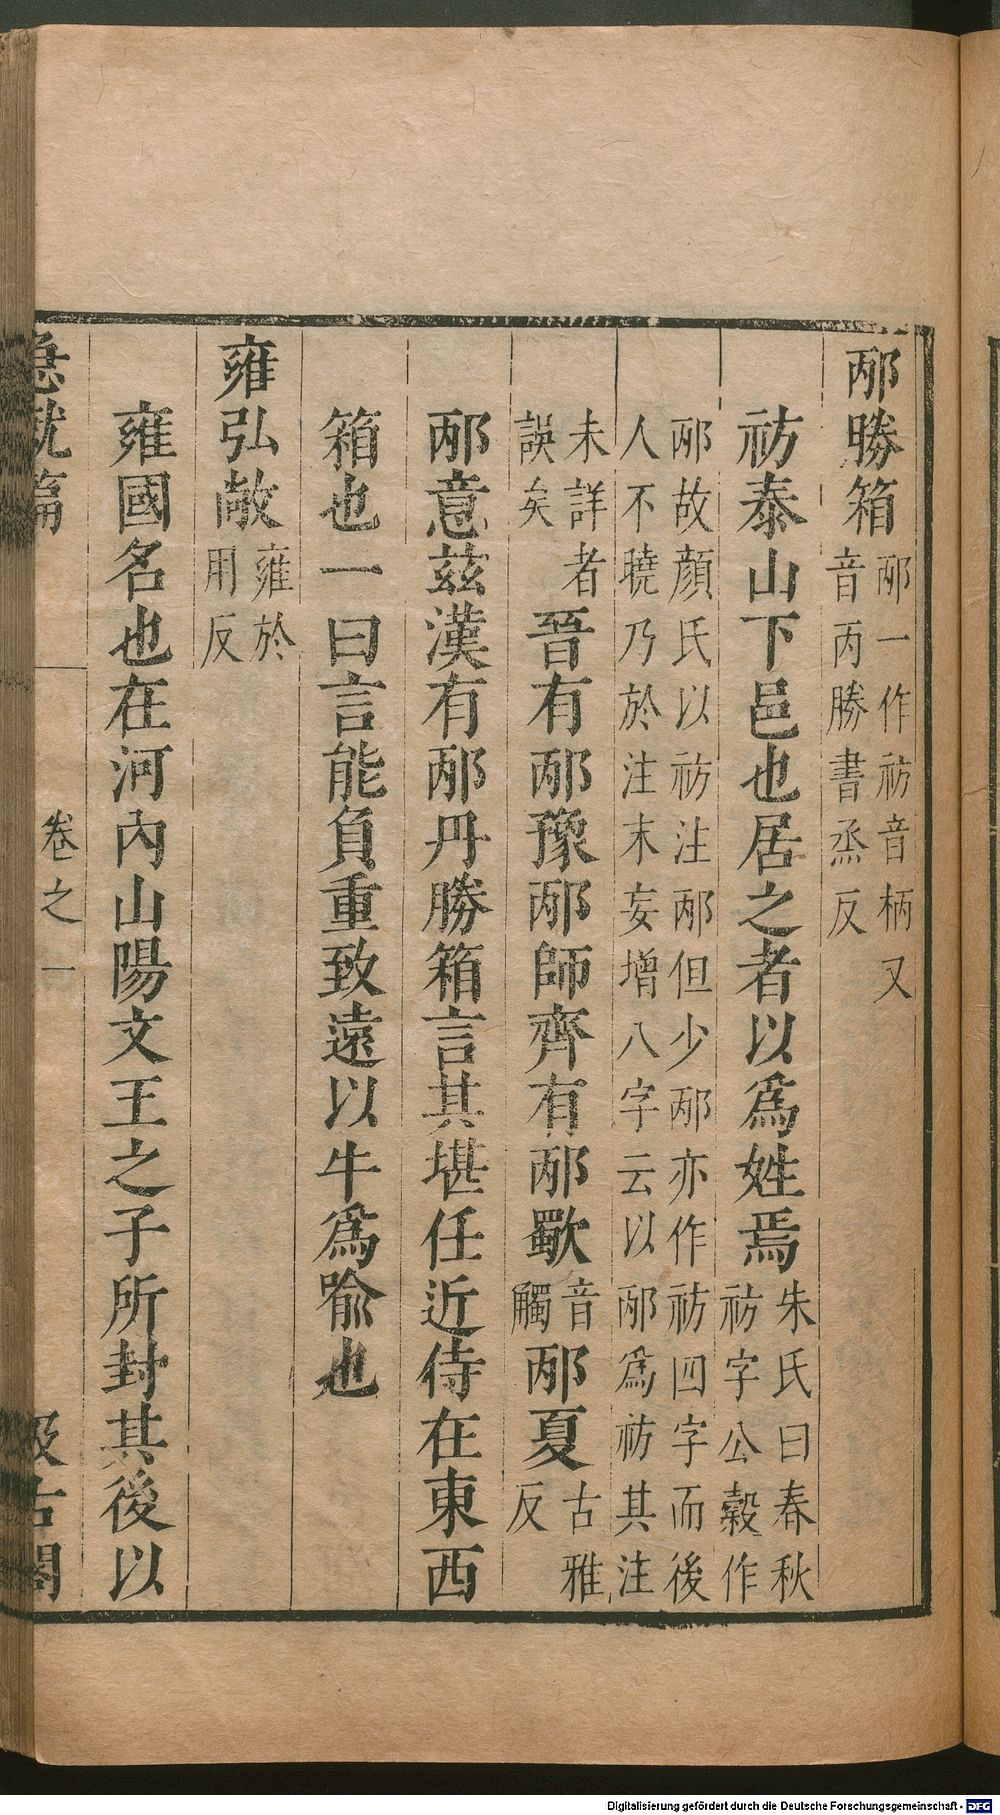 邴勝箱邴一作祊音柄又音丙勝書烝反
祊泰山下邑也居之者以爲姓焉朱氏曰春秋祊字公穀作
邴故顏氏以祊注邴但少邴亦作祊四字而後
人不曉乃於注末妄增八字云以邴爲祊其注
未詳者誤矣晉有邴豫邴師齊有邴歜音觸邴夏古雅反
邴意兹漢有邴丹勝箱言其堪任近侍在東西
箱也一曰言能負重致遠以牛爲喻也
雍弘敞雍於用反
雍國名也在河內山陽文王之子所封其後以
急就篇 卷之一 汲古閣
Digitalisierung gefördert durch die Deutsche Forschungsgemeinschaft - DFG